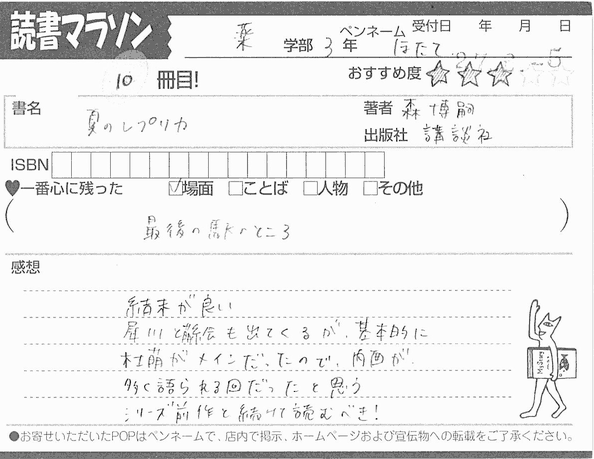 読書マラソン
薬 学部 3年 ペンネーム ほたて 受付日 年 月 日
10 冊目!
おすすめ度 ☆☆☆
書名 夏のレプリカ
著者 森 博嗣
出版社 講談社
ISBN
♥一番心に残った ☑場面 □ことば □人物 □その他
( 最後の駅のところ )
感想
結末が良い
犀川と萌絵も出てくるが、基本的に
杜萌がメインだったので、内面が
多く語られる回だったと思う
シリーズ前作と続けて読むべき!
●お寄せいただいたPOPはペンネームで、店内で掲示、ホームページおよび宣伝物への転載をご了承ください。